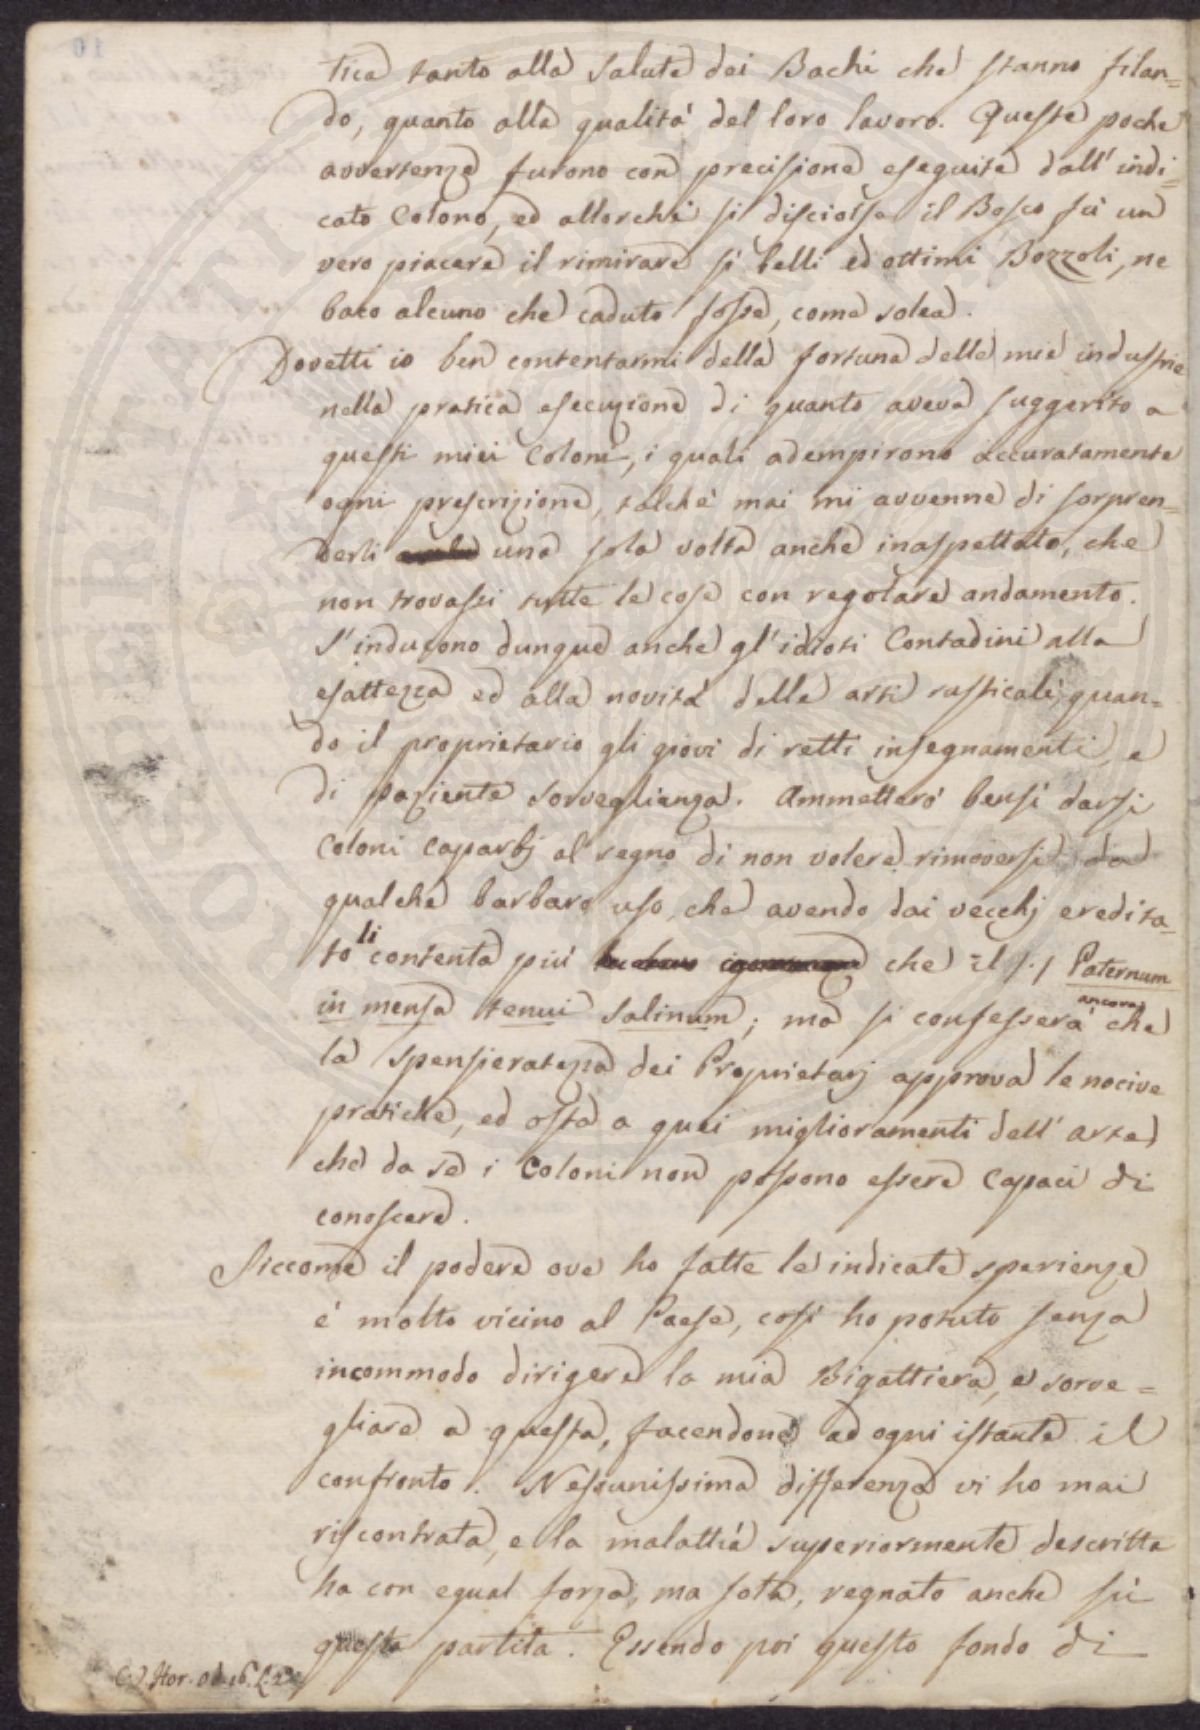 tica tanto alla salute dei Bachi che stanno filan=
do, quanto alla qualità del loro lavoro. Queste poche
avvertenze furono con precisione eseguite dall' indi=
cato Colono, ed allorchè si disciolse il Bosco fù un
vero piacere il rimirare sì belli ed ottimi Bozzoli, ne
baco alcuno che caduto fosse, come solea.
Dovetti io ben contentarmi della fortuna delle mie industrie
nella pratica esecuzione di quanto aveva suggerito a
questi miei Coloni, i quali adempirono accuratamente
ogni prescrizione, talchè mai mi avvenne di sorpren=
derli una sola volta anche inaspettato, che
non trovassi tutte le cose con regolare andamento.
S'inducono dunque anche gl'idioti Contadini alla
esattezza ed alla novità delle arti rusticali, quan=
do il proprietario gli giovi di retti insegnamenti, e
di paziente sorveglianza. Ammetterò bensì darsi
Coloni caparbj al segno di non volere rimoversi da
qualche barbaro uso, che avendo dai vecchj eredita=
to li contenta più che il (.) Paternum
in mensa tenui salinum; ma si confesserà ancora che
la spensieratezza dei Proprietarj approva le nocive
pratiche, ed osta a quei miglioramenti dell' arte
che da se i Coloni non possono essere capaci di
conoscere.
Siccome il podere ove ho fatte le indicate sperienze
è molto vicino al Paese, così ho potuto senza
incommodo dirigere la mia Bigattiera, e sorve=
gliare a questa, facendone ad ogni istante il
confronto. Nessunissima differenza vi ho mai
riscontrata, e la malattia superiormente descritta
ha con egual forza, ma sola, regnato anche sù
questa partita. Essendo poi questo fondo di
(.) Hor. Od. 16. L. 2°